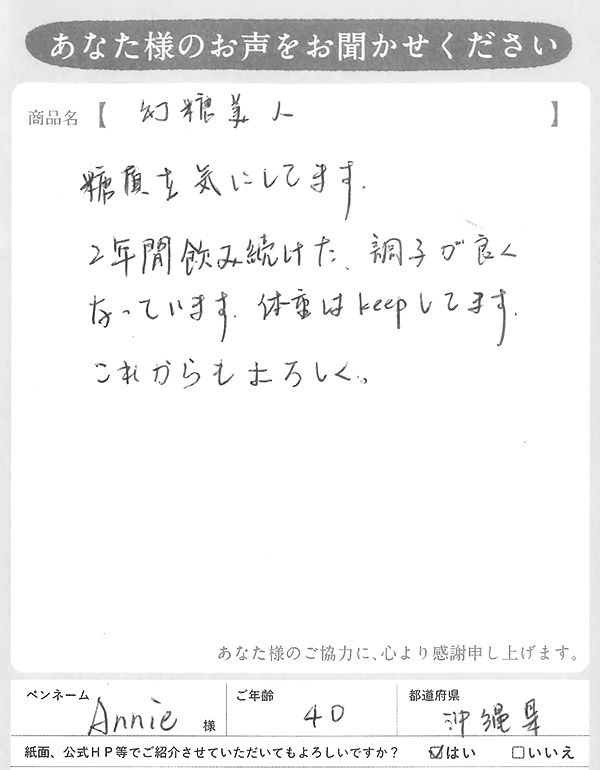 あなた様のお声をお聞かせください
商品名【 幻糖美人 】
糖質を気にしてます.
2年間飲み続けた、調子が良く
なっています. 体重はkeepしてます.
これからもよろしく。
あなた様のご協力に、心より感謝申し上げます。
ペンネーム Annie 様 ご年齢 40 都道府県 沖縄県
紙面、公式HP等でご紹介させていただいてもよろしいですか? ☑はい □いいえ